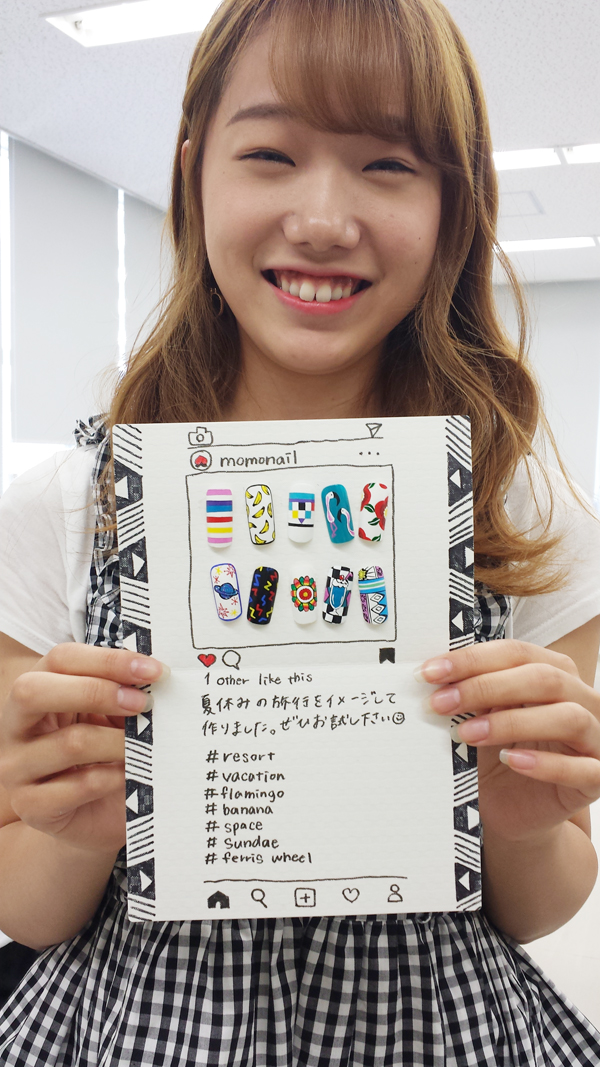 momonail
1 other like this
夏休みの旅行をイメージして
作りました。ぜひお試し下さい
#resort
#vacation
#flamingo
#banana
#space
#sundae
#ferris wheel